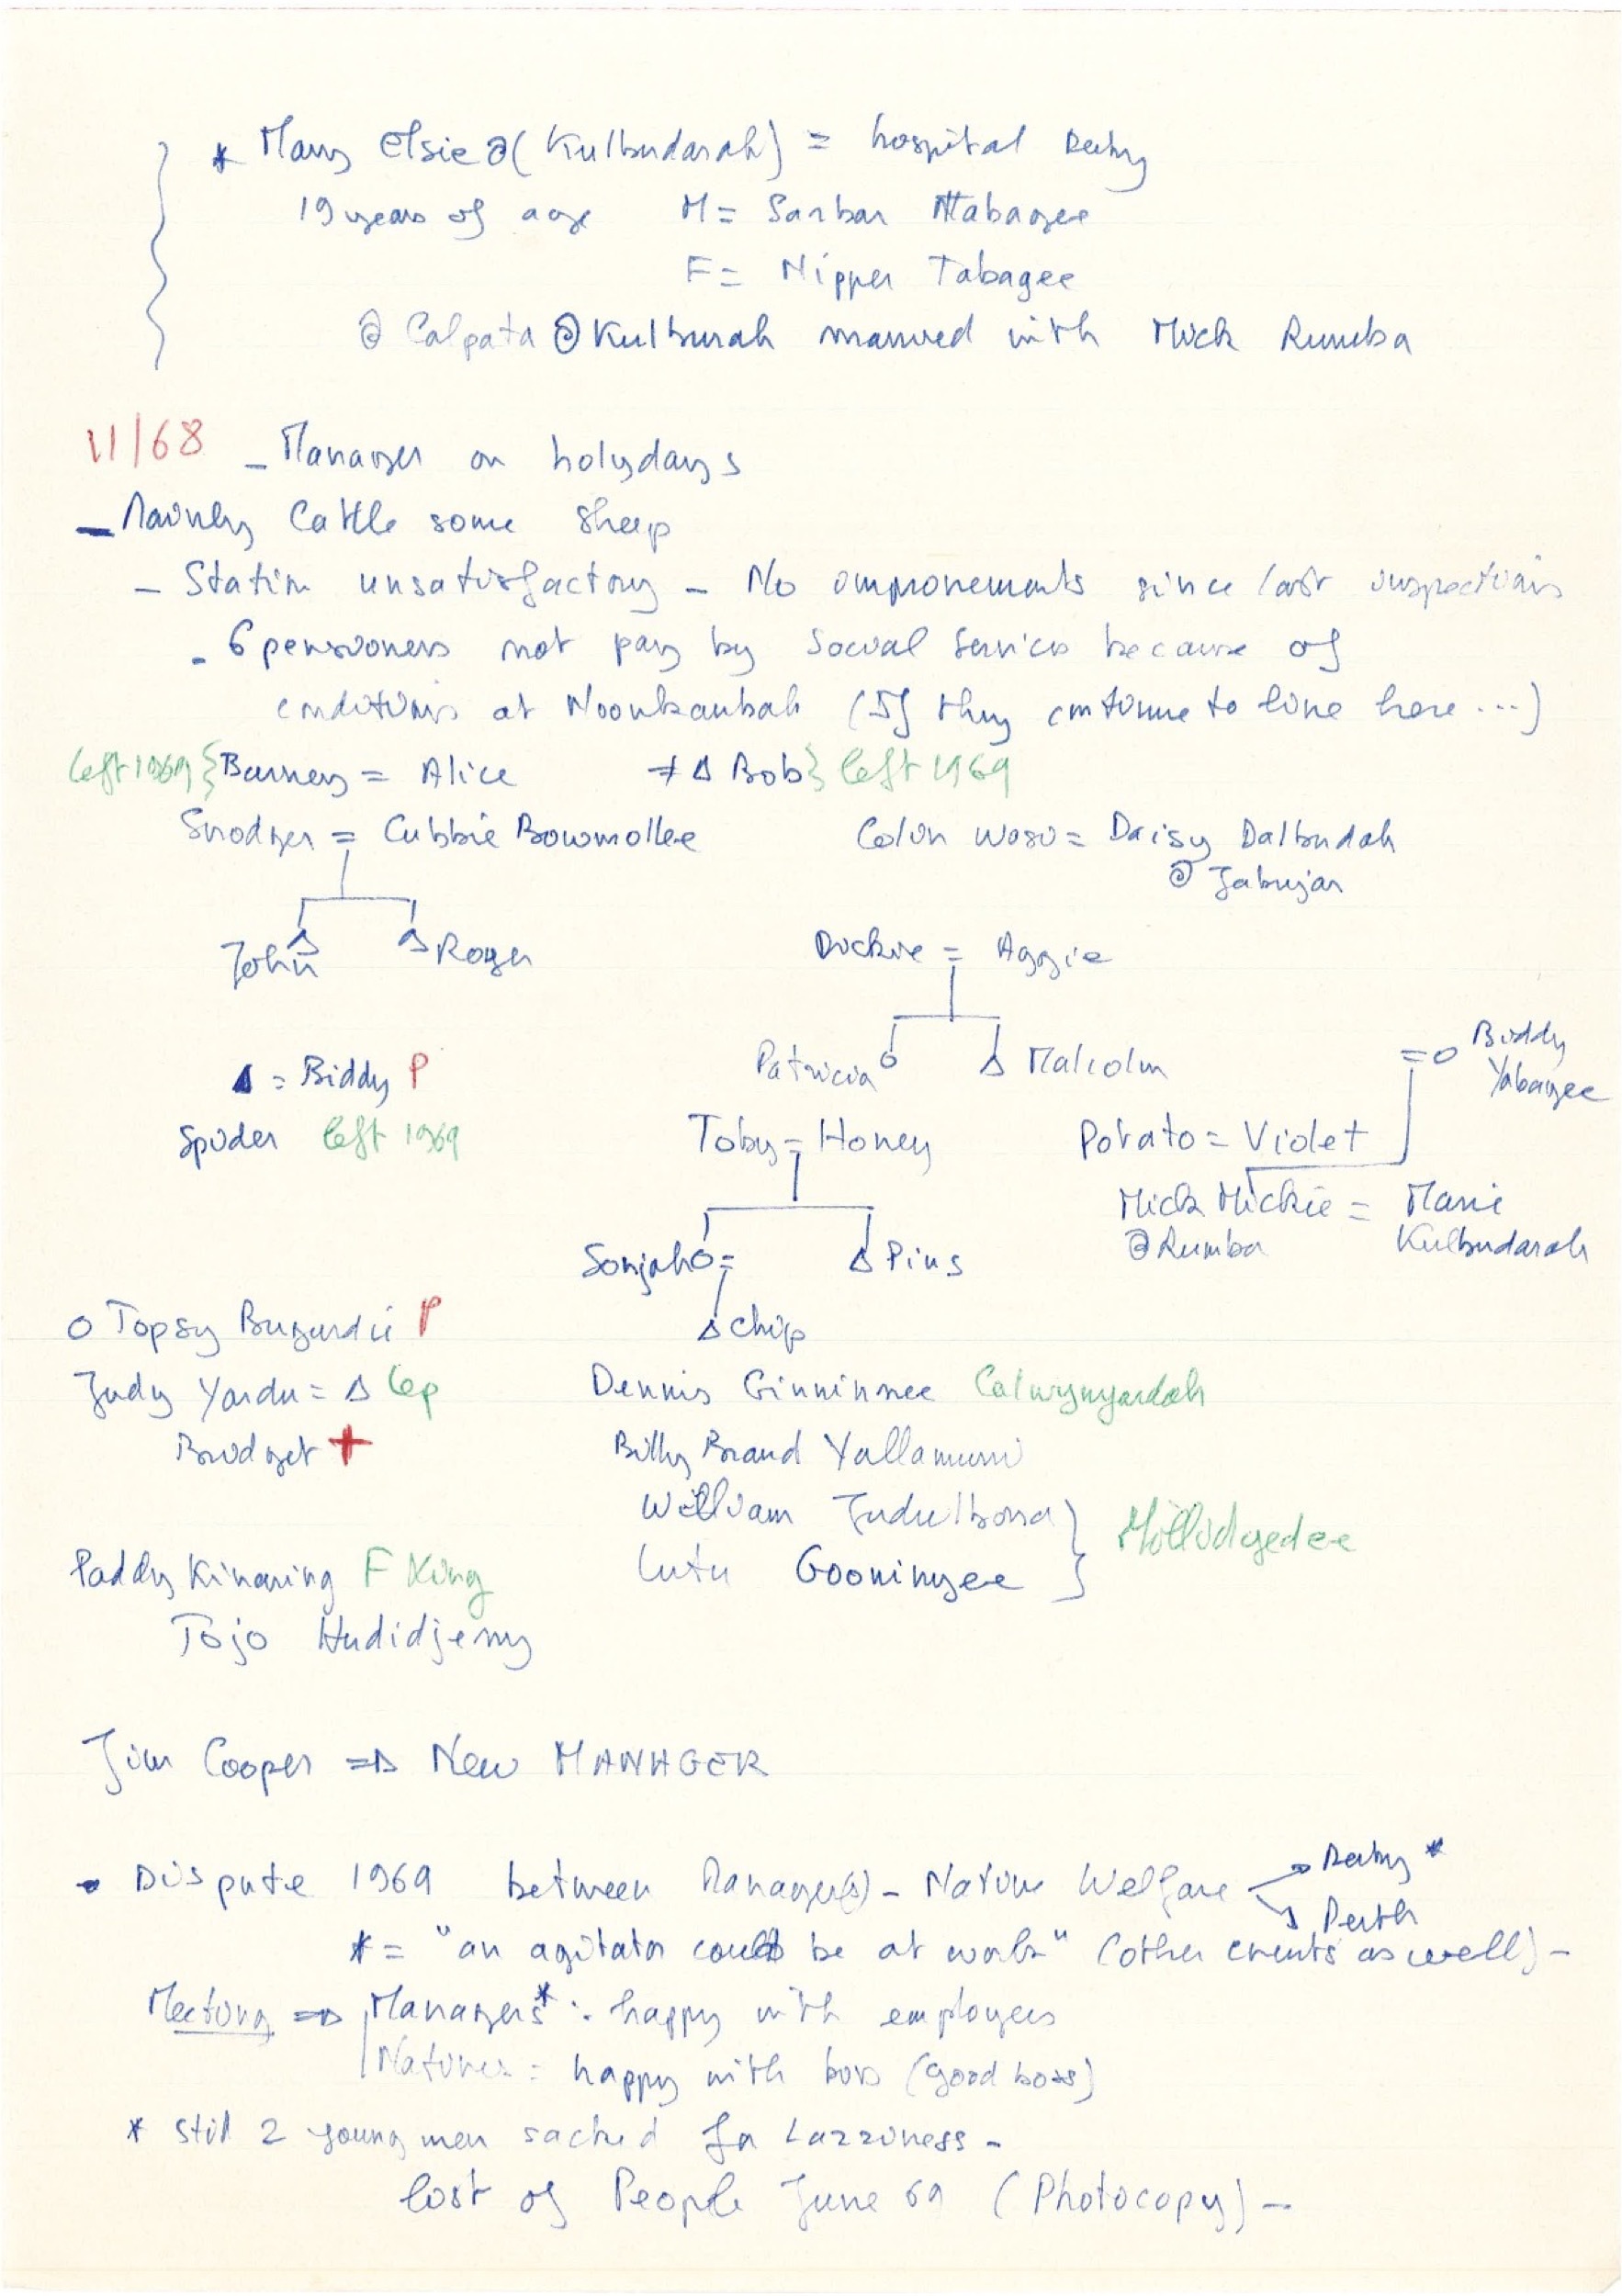 * Mary Elsie @ (Kulbudarah) = hospital Derby
19 years of age M = Sanbar Tabagee
F = Nipper Tabagee
@ Calpata @ Kulburah married with Mick Rumba
11/68 - Manager on holydays
- Mainly Cattle some sheep
- Station unsatisfactory - No improvements since last inspections
- 6 pensioners not pay by Social Services because of
conditions at Noonkanbah (If they continue to live here ...)
left 1969 { Barney = Alice ≠ Δ Bob } left 1969
Snodger = Cubbie Bowmollee Colin Woso = Daisy Dalbudah
@ Jabujar
John Δ Δ Roger Dickie = Aggie
Patricia o Δ Malcolm = o Biddy Yabagee
Δ = Biddy P
Spider left 1969 Toby = Honey Potato = Violet
Mick Mickie = Marie
@ Rumba Kulbudarah
Sonjah o = Δ Pius
o Topsy Bugurdii P Δ Chip
Judy Yardu = Δ Lep Dennis Ginninnee Calwynyardah
Bridget + Billy Brand Yallamurri
William Judulbona } Millidgedee
Paddy Kinaring F King Lutu Gooninyee }
Tojo Hudidjerry
Jim Cooper => New MANAGER
- Dispute 1969 between Manager(s) - Native Welfare → Derby *
→ Perth
* = "an agitator could be at work" (other events as well) -
Meeting => Managers* : happy with employees
Natives : happy with boss (good boss)
* Still 2 young men sacked for Lazziness -
list of People June 69 (Photocopy) -